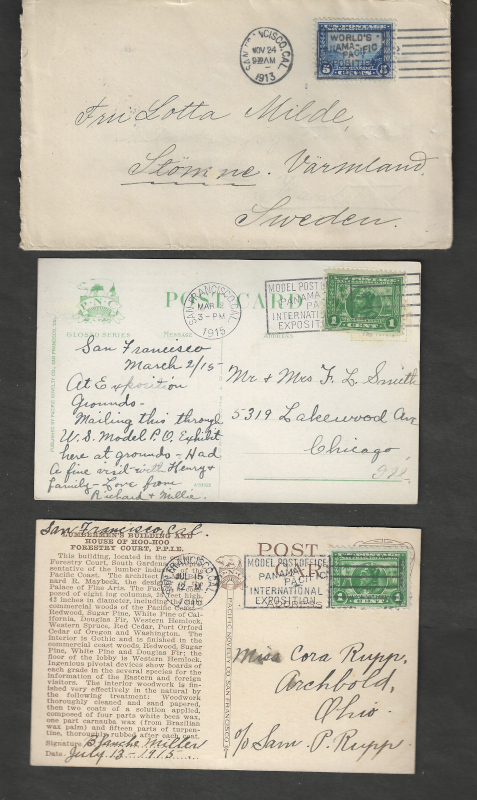 SAN FRANCISCO, CAL.
NOV 24
9 30 AM
1913
WORLD'S
PANAMA-PACIFIC
EXPOSITION
5 5
Fru Lotta Milde,
Stömne. Värmland,
Sweden.
P.N.C.
POST CARD
SAN FRANCISCO, CAL.
MAR 2
3-PM
1915
MODEL POST OFFICE
PANAMA
PACIFIC
INTERNATIONAL
EXPOSITION
1 CENT 1
GLOSSO SERIES MESSAGE ADDRESS
PUBLISHED BY PACIFIC NOVELTY CO., SAN FRANCISCO, CAL.
San Francisco
March 2/15-
At Exposition
Grounds-
Mailing this through
U.S. Model P.O. Exhibit
here at grounds- Had
a fine visit with Henry &
family- Love from
Richard & Millie.
Mr & Mrs F. L. Smith
5319 Lakewood Av
Chicago
Ill.
San Francisco, Cal.
LUMBERMEN'S BUILDING AND
HOUSE OF HOO-HOO
FORESTRY COURT, P.P.I.E.
This building, located in the
Forestry Court, South Gardens,
sentative of the lumber
Pacific Coast. The architect
nard R. Maybeck, the designer
Palace of Fine Arts. The
posed of eight log columns,
42 inches in diameter, including
commercial woods of the Pacific Coast
Redwood, Sugar Pine, White Pine of Cal-
ifornia, Douglas Fir, Western Hemlock,
Western Spruce, Red Cedar, Port Orford
Cedar of Oregon and Washington. The
interior is Gothic and is finished in the
commercial coast woods, Redwood, Sugar
Pine, White Pine and Douglas Fir; the
floor of the lobby is Western Hemlock.
Ingenious pivotal devices show boards of
each grade in the several species for the
information of the Eastern and foreign
visitors. The interior woodwork is fin-
ished very effectively in the natural by
the following treatment: Woodwork
thoroughly cleaned and sand papered,
then two coats of a solution applied,
composed of four parts white bees wax,
one part carnauba wax (from Brazilian
wax palm) and fifteen parts of turpen-
tine, thoroughly rubbed after each coat.
Signature Blanche Miller
Date July 13-1915
SAN FRANCISCO, CAL.
JUL 15
12 M
1915
POST CARD
MODEL POST OFFICE
PANAMA
PACIFIC
INTERNATIONAL
EXPOSITION
1 CENT 1
PACIFIC NOVELTY CO. SAN FRANCISCO
Miss Cora Rupp,
Archbold,
Ohio.
c/o Sam P. Rupp.